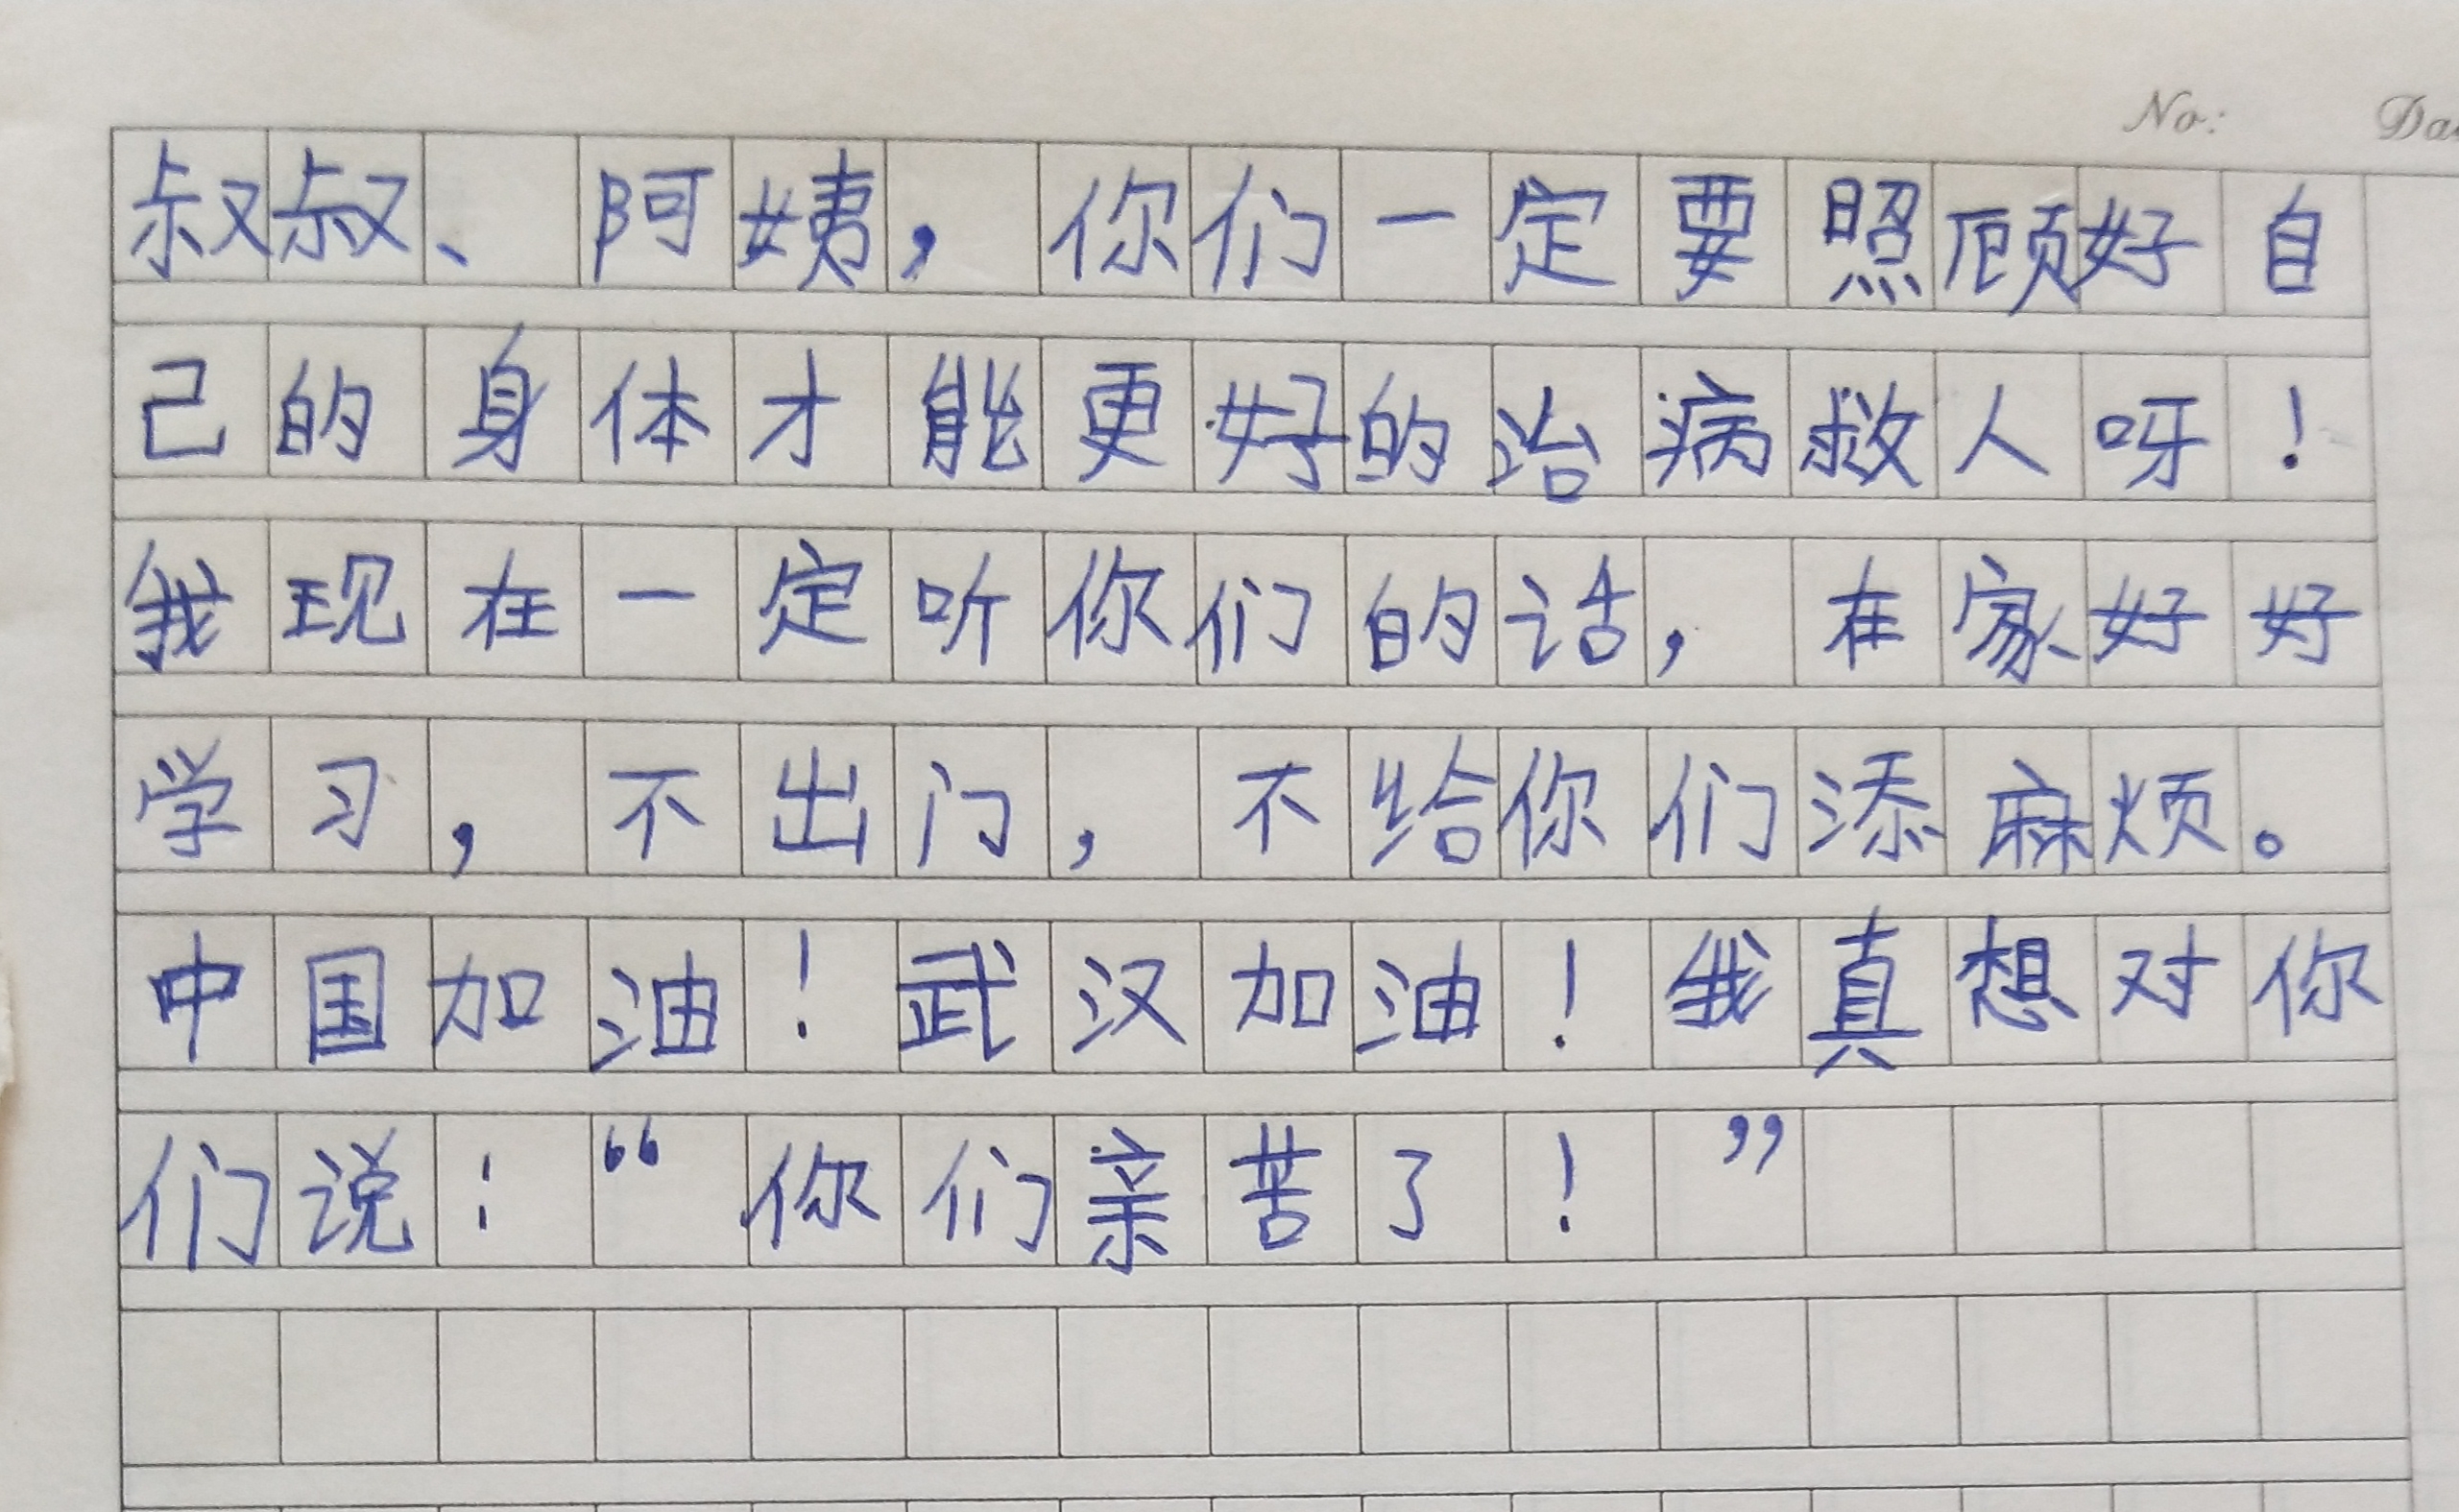 No: Da
叔叔、阿姨，你们一定要照顾好自
己的身体才能更好的治病救人呀！
我现在一定听你们的话，在家好好
学习，不出门，不给你们添麻烦。
中国加油！武汉加油！我真想对你
们说：“你们亲苦了！”